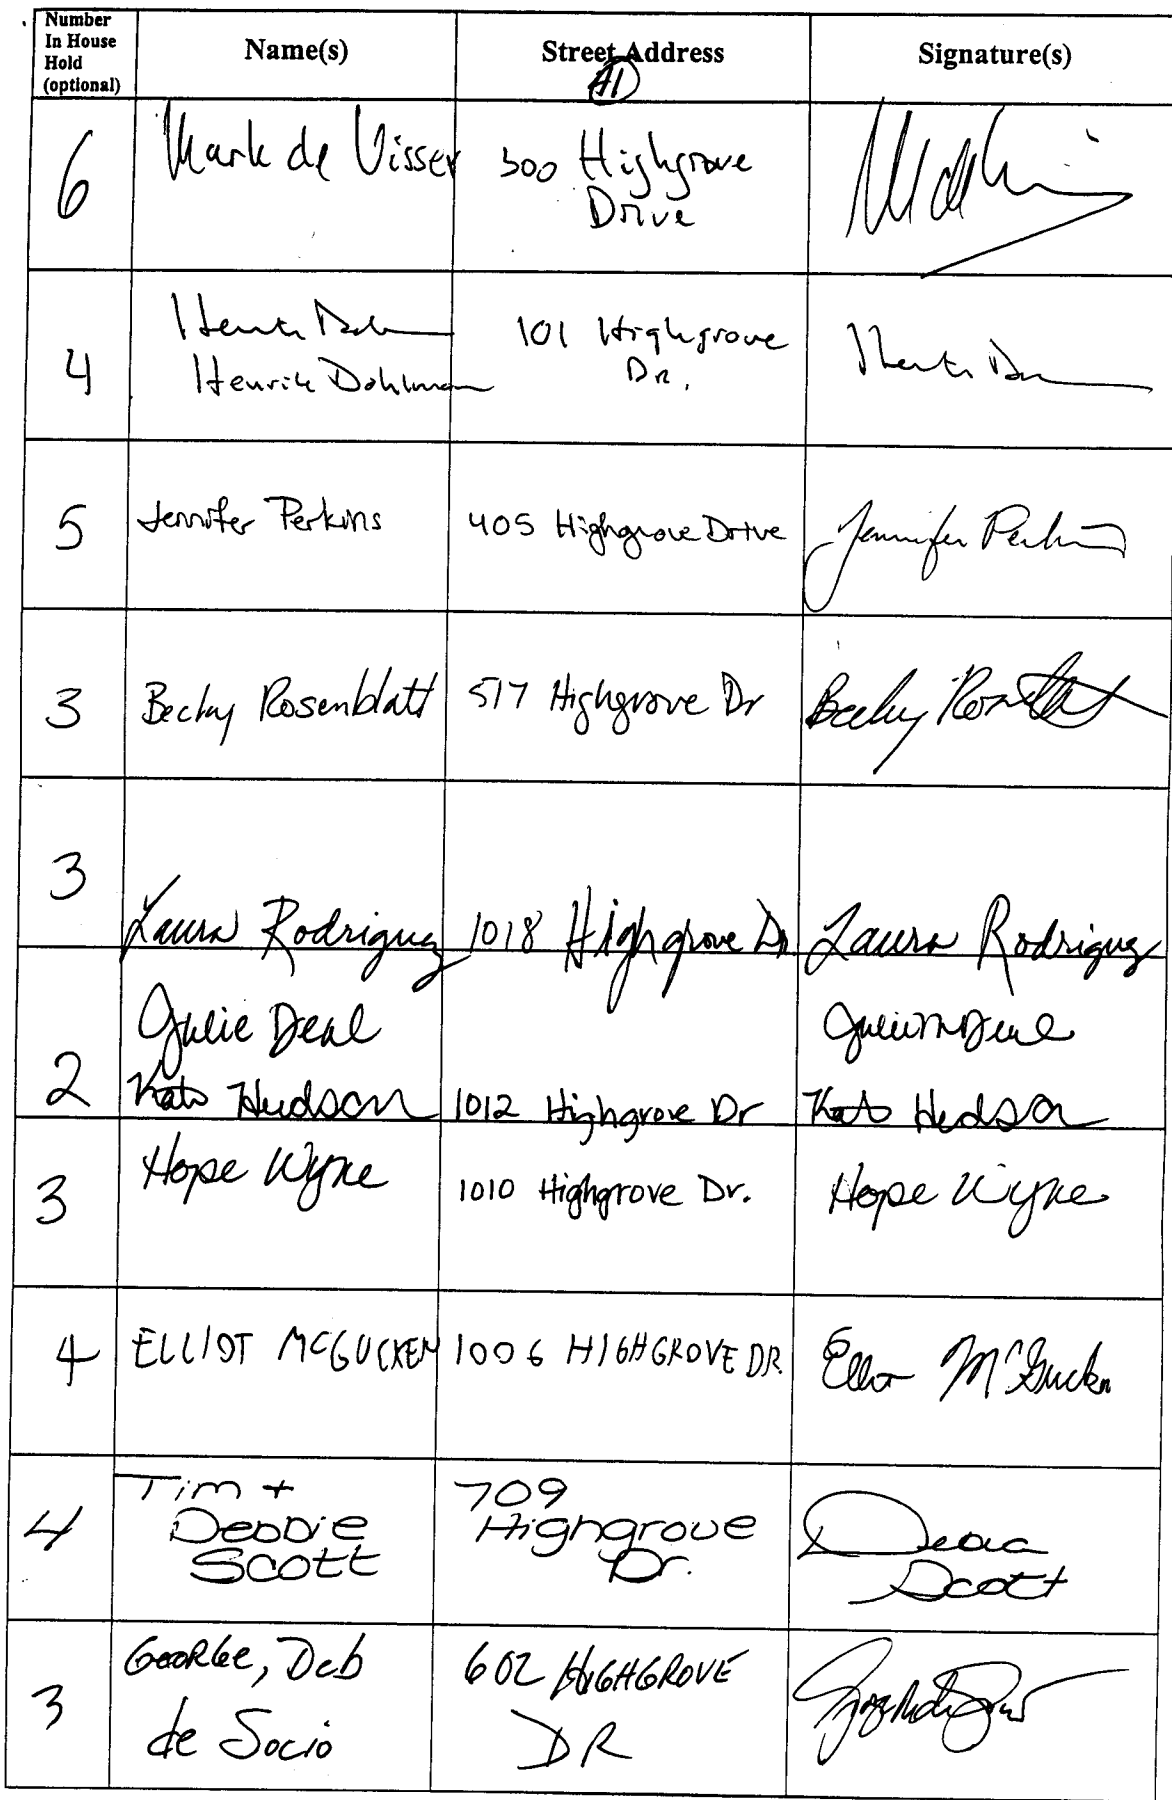 Number In House Hold (optional) Name(s) Street Address Signature(s)
#1
6 Mark de Visser 300 Highgrove Drive
4 Henrik Dohlman 101 Highgrove Dr.
5 Jennifer Perkins 405 Highgrove Drive Jennifer Perkins
3 Becky Rosenblatt 517 Highgrove Dr Becky
3 Laura Rodriguez 1018 Highgrove Dr Laura Rodriguez
Julie Deal Julie M Deal
2 Kate Hudson 1012 Highgrove Dr Kate Hudson
3 Hope Wyne 1010 Highgrove Dr. Hope Wyne
4 ELLIOT MCGUCKEN 1006 HIGHGROVE DR. Elliot McGucken
4 Tim + Debbie Scott 709 Highgrove Dr. Scott
3 George, Deb de Socio 602 HIGHGROVE DR